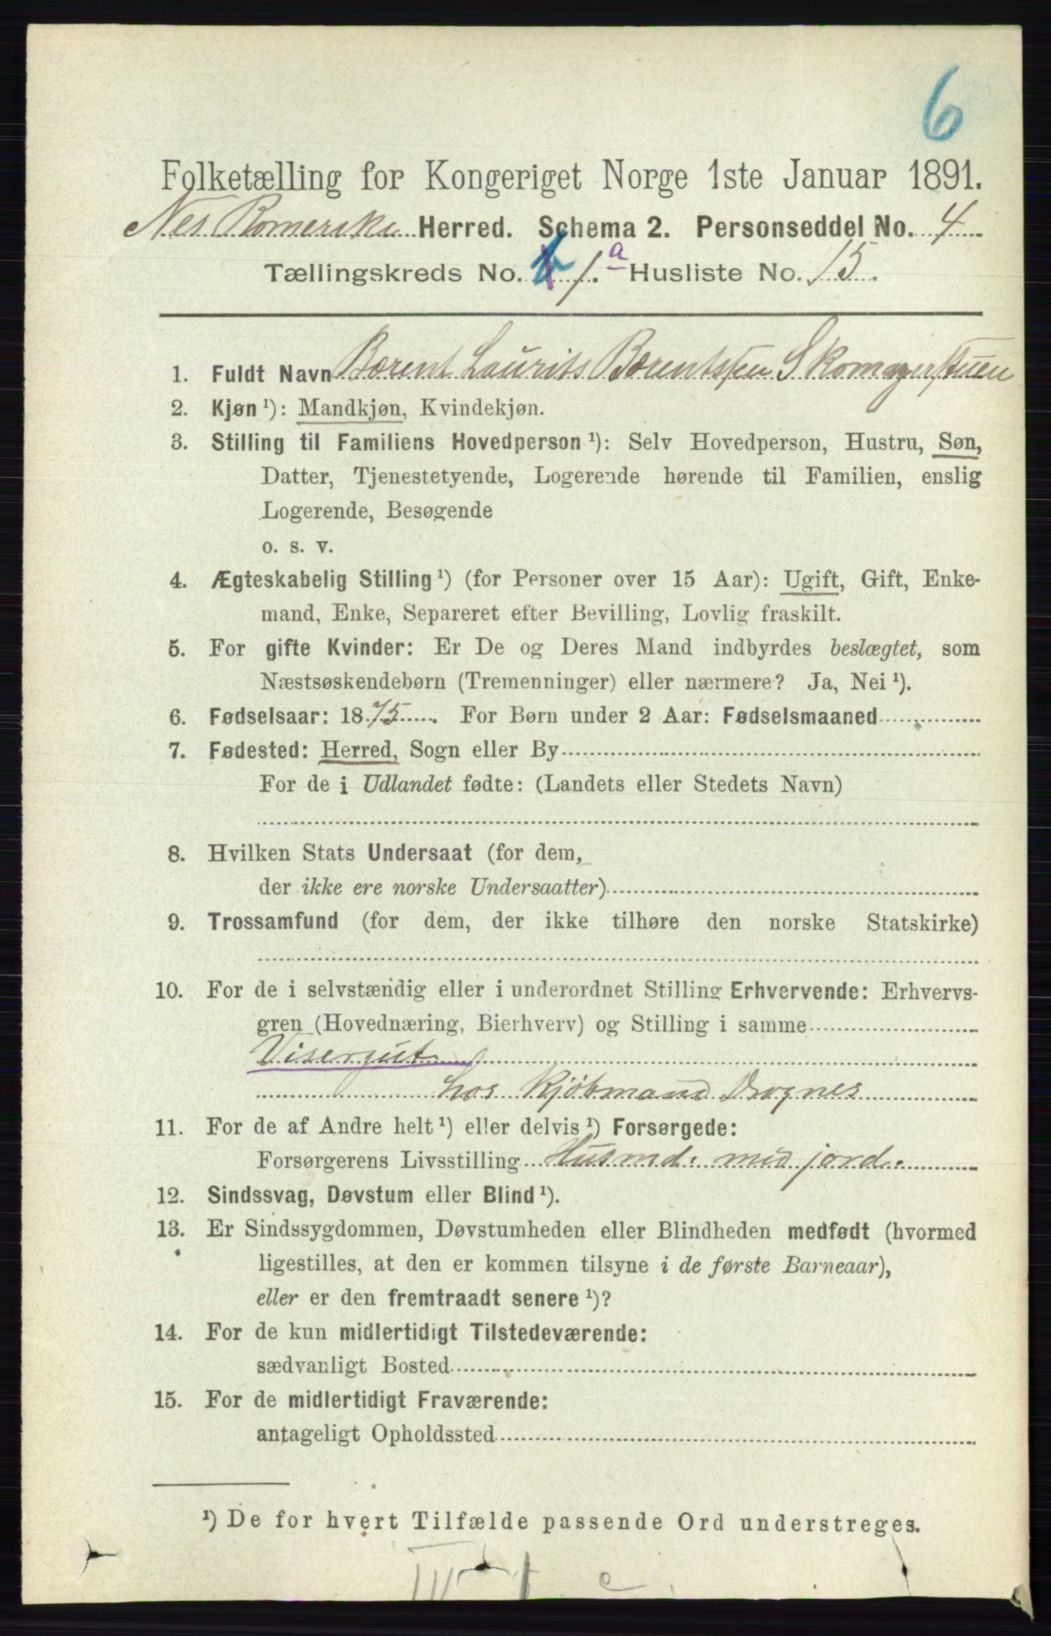 6
Folketælling for Kongeriget Norge 1ste Januar 1891.
Nes Romerike Herred. Schema 2. Personseddel No. 4
Tællingskreds No. 1.a Husliste No. 15.
1. Fuldt Navn Bærent Laurits Bærentssen Skomagerstuen
2. Kjøn ¹): Mandkjøn, Kvindekjøn.
3. Stilling til Familiens Hovedperson ¹): Selv Hovedperson, Hustru, Søn,
Datter, Tjenestetyende, Logerende hørende til Familien, enslig
Logerende, Besøgende
o. s. v.
4. Ægteskabelig Stilling ¹) (for Personer over 15 Aar): Ugift, Gift, Enke-
mand, Enke, Separeret efter Bevilling, Lovlig fraskilt.
5. For gifte Kvinder: Er De og Deres Mand indbyrdes beslægtet, som
Næstsøskendebørn (Tremenninger) eller nærmere? Ja, Nei ¹).
6. Fødselsaar: 1875. For Børn under 2 Aar: Fødselsmaaned
7. Fødested: Herred, Sogn eller By
For de i Udlandet fødte: (Landets eller Stedets Navn)
8. Hvilken Stats Undersaat (for dem,
der ikke ere norske Undersaatter)
9. Trossamfund (for dem, der ikke tilhøre den norske Statskirke)
10. For de i selvstændig eller i underordnet Stilling Erhvervende: Erhvervs-
gren (Hovednæring, Bierhverv) og Stilling i samme
Visergut
hos Kjøbmand Dragnes
11. For de af Andre helt ¹) eller delvis ¹) Forsørgede:
Forsørgerens Livsstilling Husmd. med jord.
12. Sindssvag, Døvstum eller Blind ¹).
13. Er Sindssygdommen, Døvstumheden eller Blindheden medfødt (hvormed
ligestilles, at den er kommen tilsyne i de første Barneaar),
eller er den fremtraadt senere ¹)?
14. For de kun midlertidigt Tilstedeværende:
sædvanligt Bosted
15. For de midlertidigt Fraværende:
antageligt Opholdssted
¹) De for hvert Tilfælde passende Ord understreges.